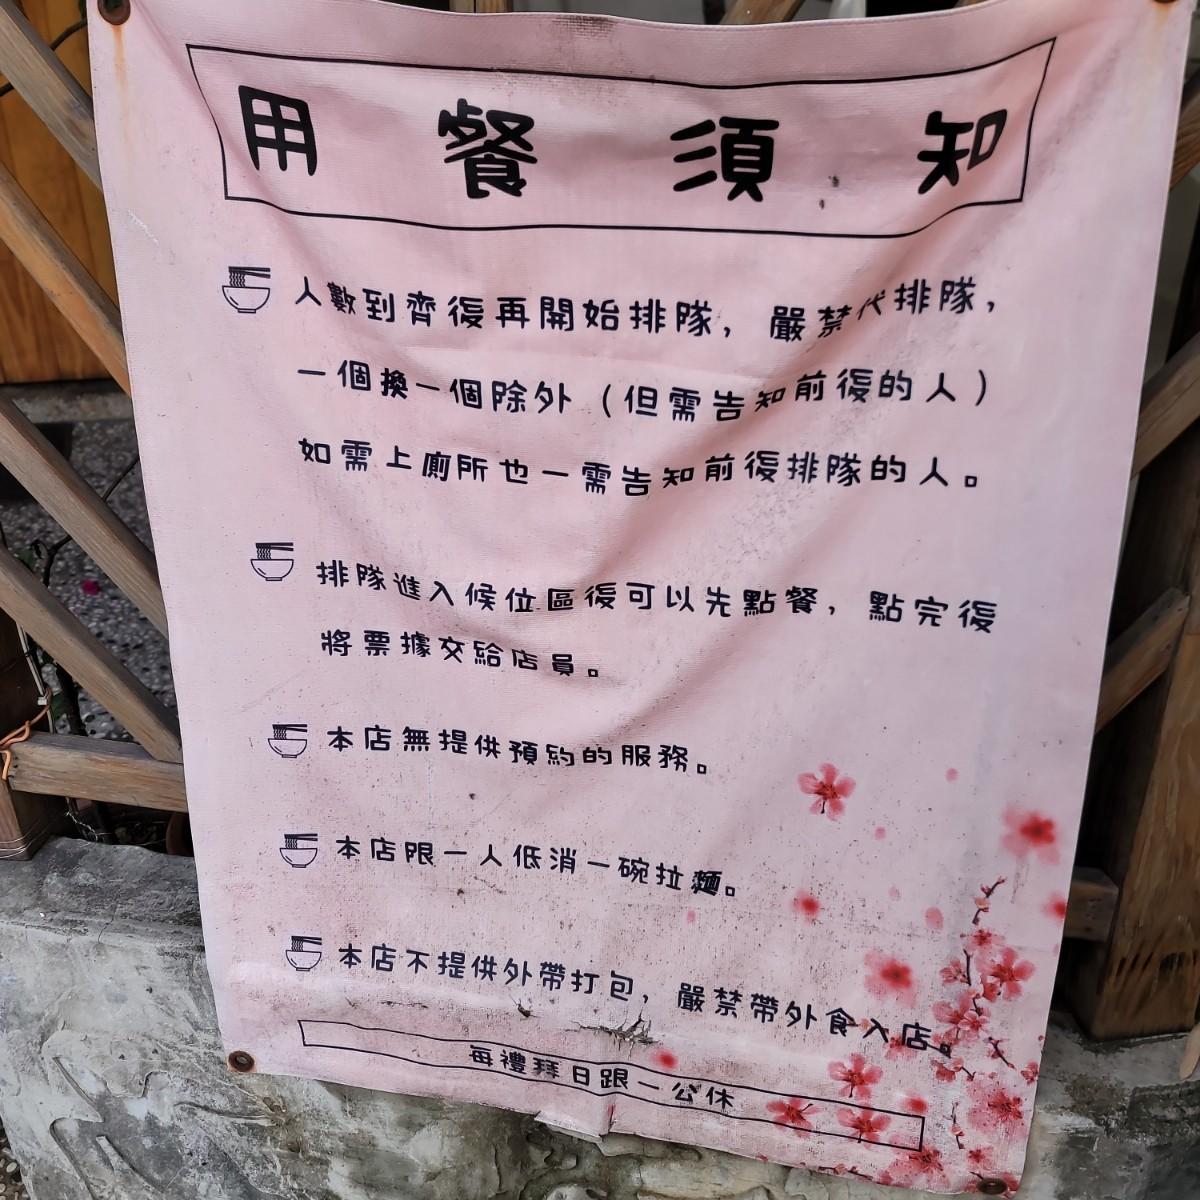 用餐須知
人數到齊後再開始排隊，嚴禁代排隊，
一個換一個除外（但需告知前後的人）
如需上廁所也一需告知前後排隊的人。
排隊進入候位區後可以先點餐，點完後
將票據交給店員。
本店無提供預約的服務。
本店限一人低消一碗拉麵。
本店不提供外帶打包，嚴禁帶外食入店。
每禮拜日跟一公休